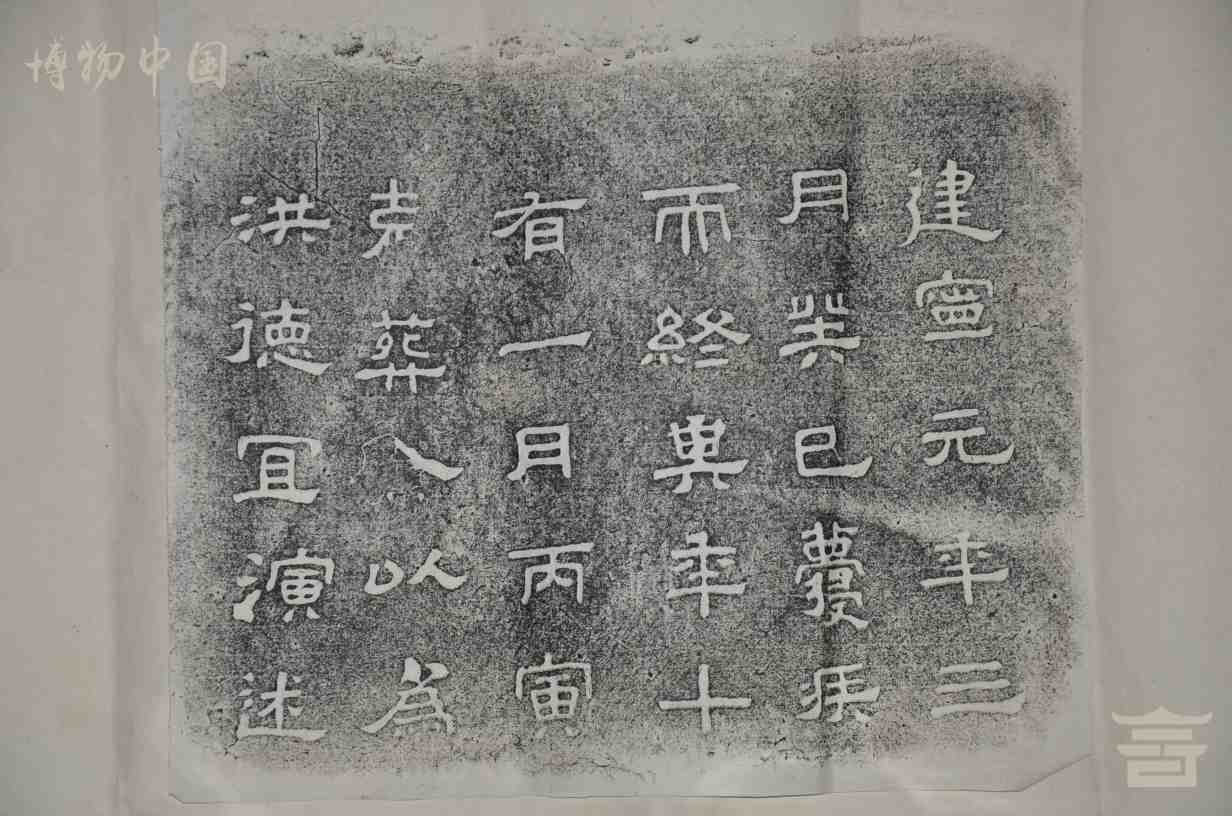 博物中国
建寧元年三
月癸巳寢疾
而終年十
有一月丙寅
克葬人以為
洪德宜演述